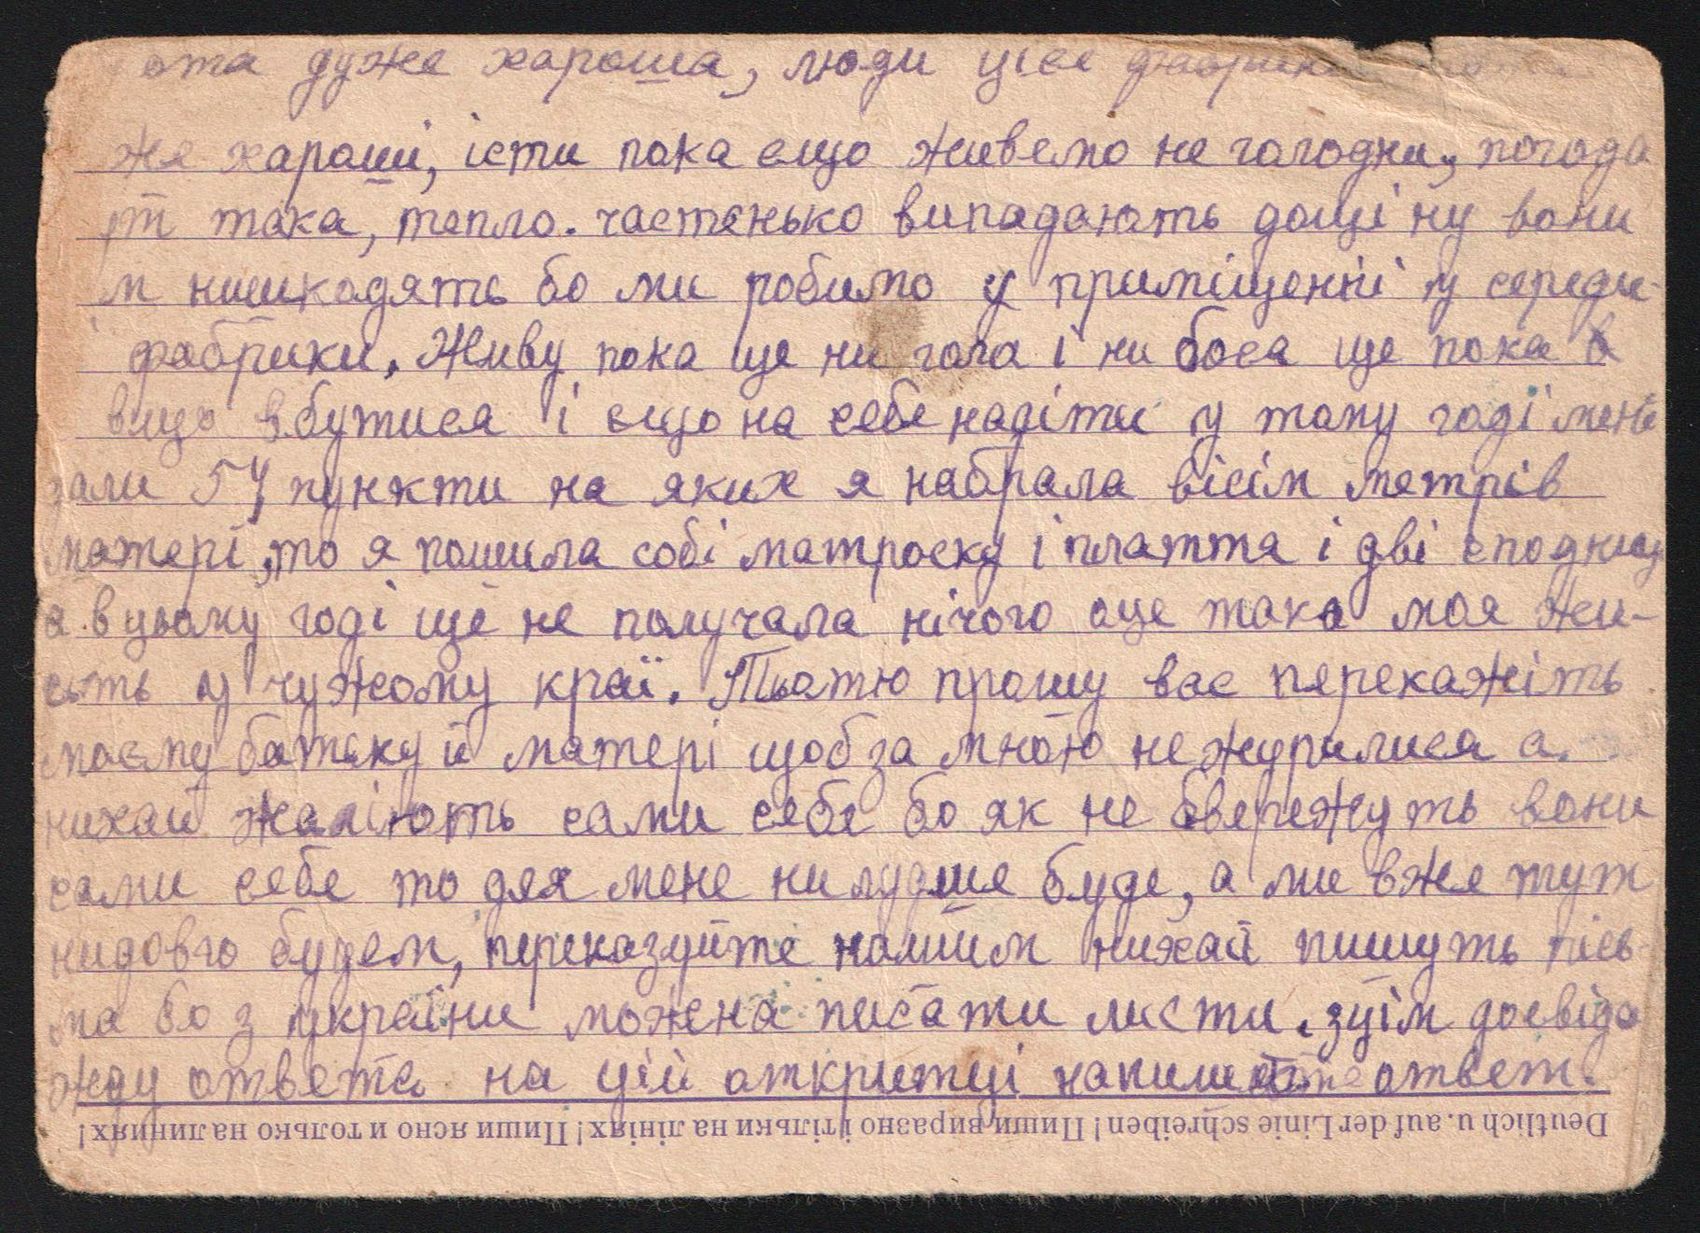 ота дуже хароша, люди цієє фабрики
же хароши, істи пока єщо живемо не голодни, погода
тут така, тепло. частенько випадають дощі ну вони
м нишкодять бо ми робимо у приміщенні у середи-
фабрики. Живу пока ще ни гола і ни боса ще пока в
вщо вбутися і єщо на себе надіти у тому годі мені
дали 54 пункти на яких я набрала вісім метрів
матері, то я пошила собі матроску і плаття і дві сподниці
а в цьому годі ще не получала нічого оце така моя жи-
сьть у чужому краї. Тьотю прошу вас перекажіть
моєму батьку й матері щоб за мною не журилися а
нихай жаліють сами себе бо як не бвережуть вони
сами себе то для мене нилудше буде, а ми вже тут
нидовго будем, переказуйте нашим нихай пишуть пісь-
ма бо з україни можена писати листи. зцім досвіда
жду ответа на цій открытці напишіте ответ.
Deutlich u. auf der Linie schreiben! Пиши виразно і тільки на лініях! Пиши ясно и только на линиях!